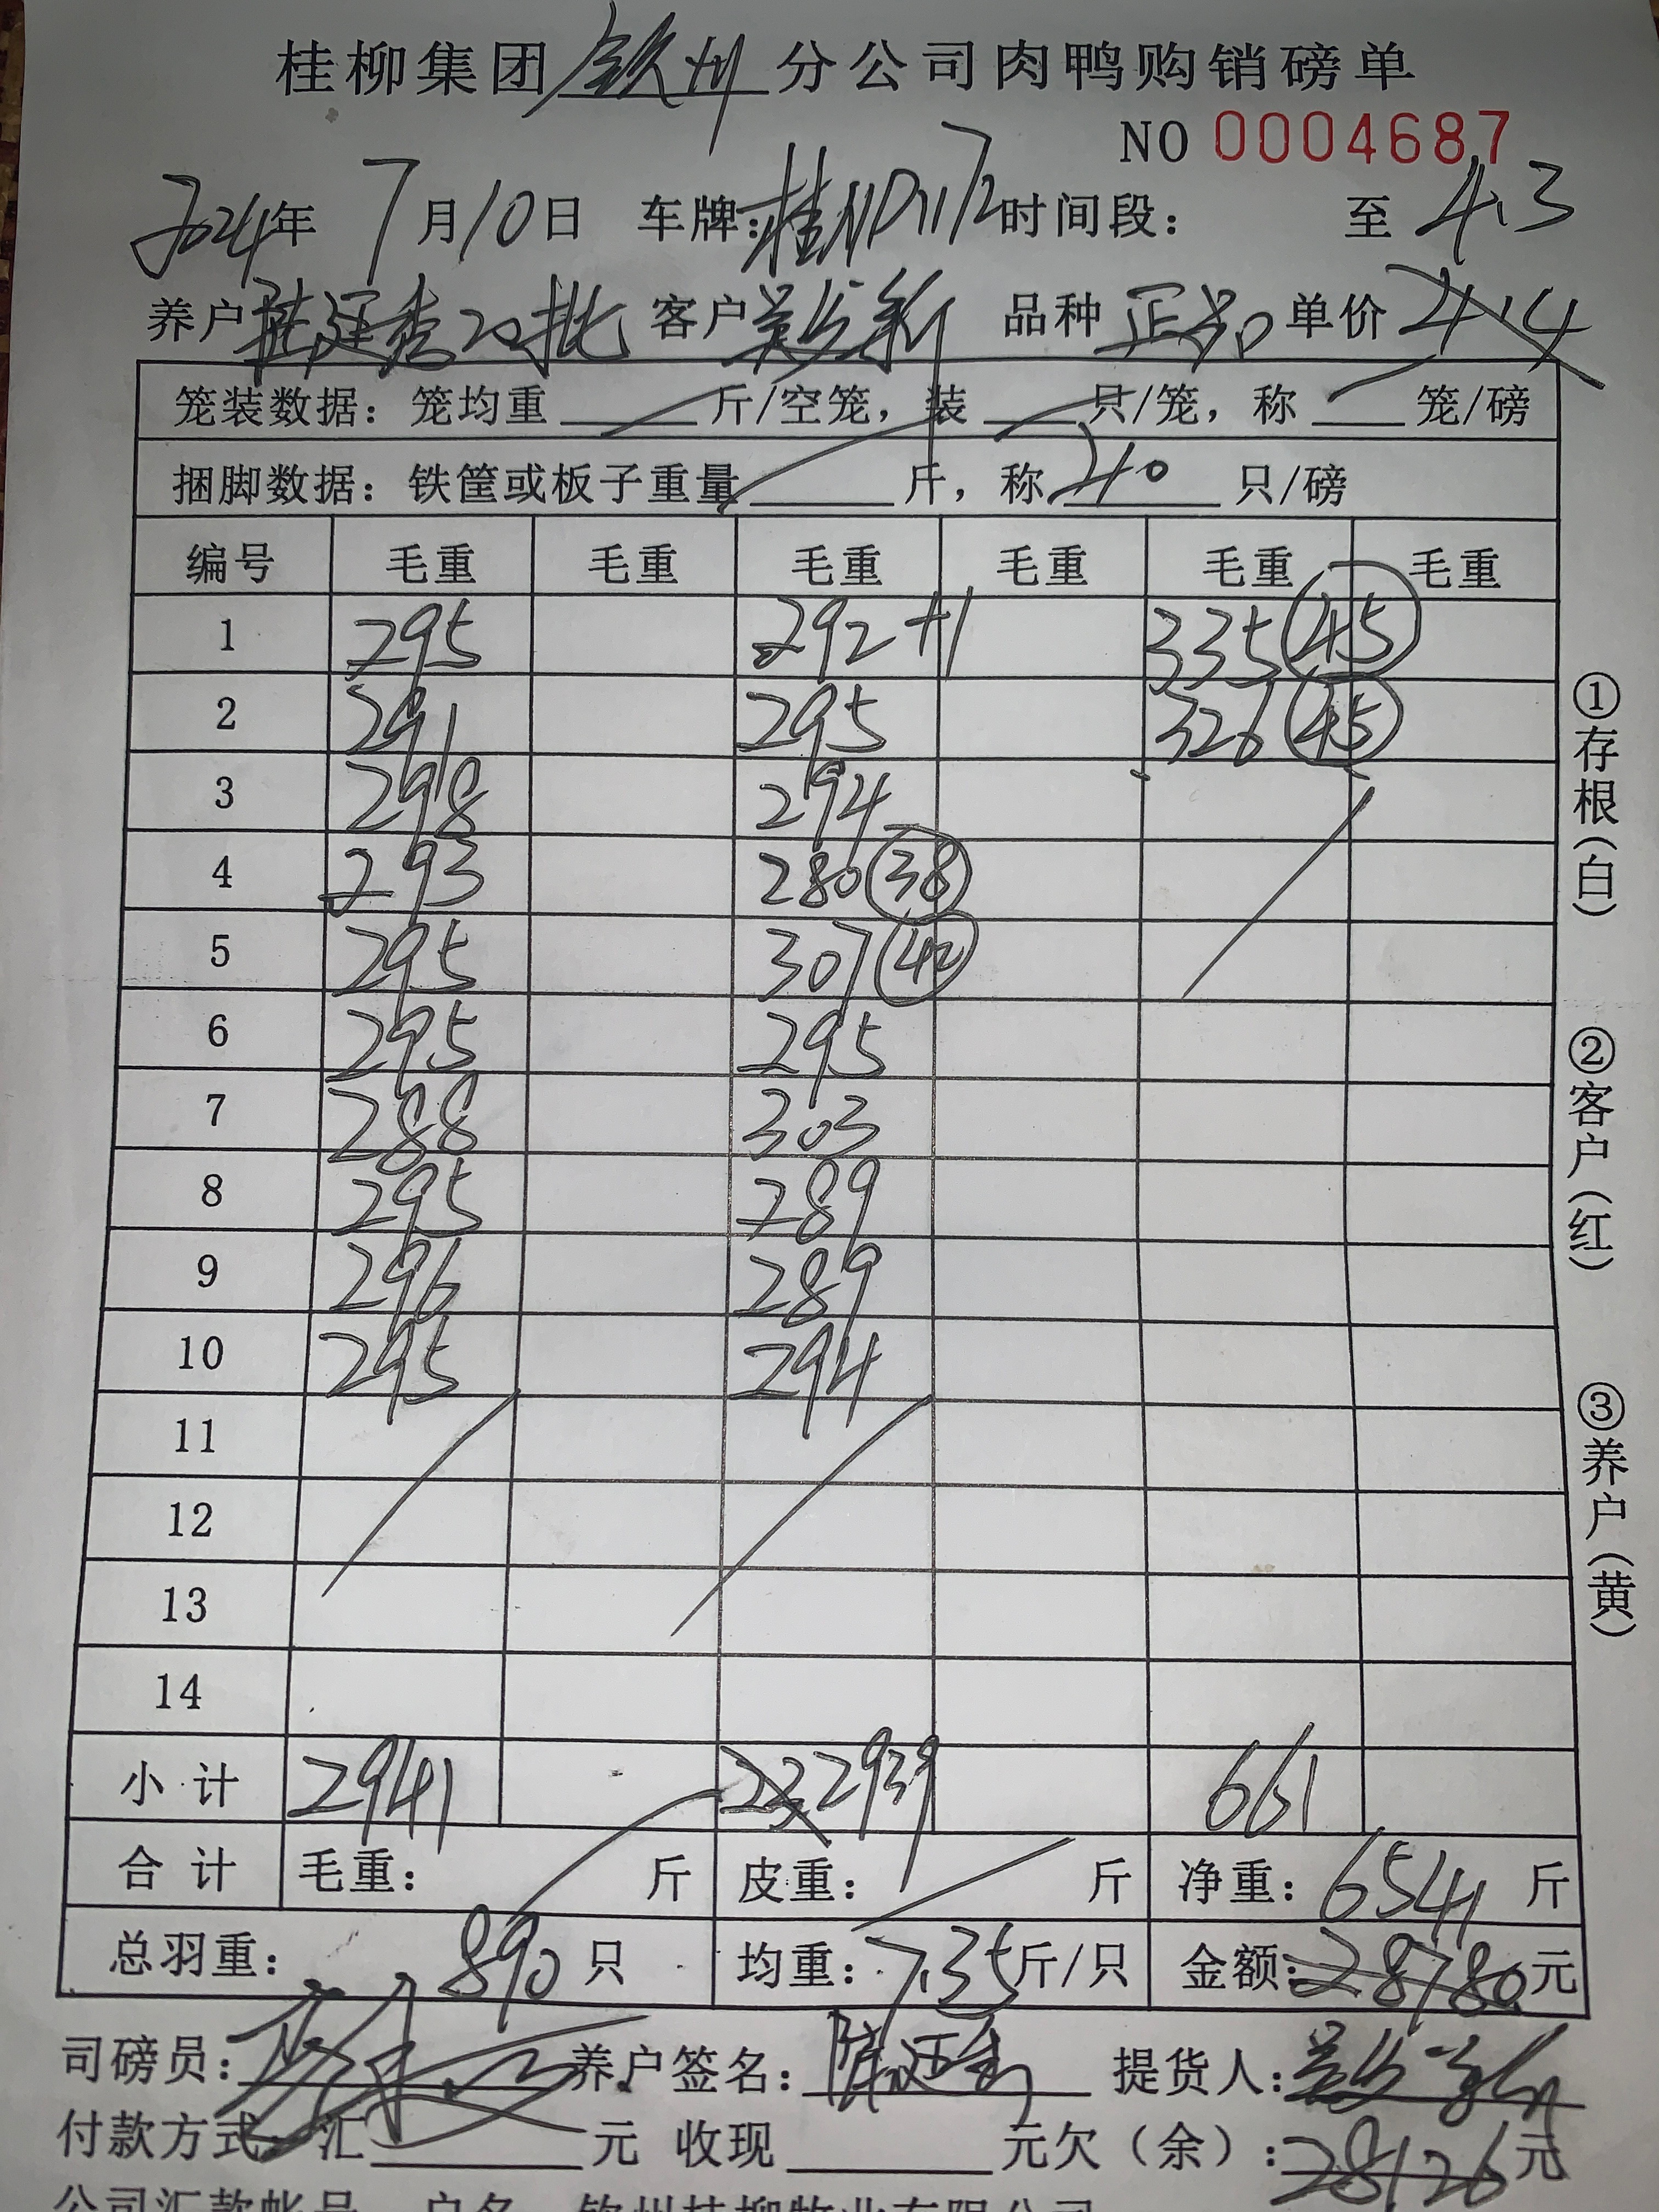 桂柳集团钦州分公司肉鸭购销磅单
NO 0004687
2024年 7月10日 车牌:桂ND1172 时间段: 至 4.3
养户 廷秀20批 客户 吴 新 品种 正品 单价 4.4
笼装数据: 笼均重 斤/空笼, 装 只/笼, 称 笼/磅
捆脚数据: 铁筐或板子重量 斤, 称 40 只/磅
编号 毛重 毛重 毛重 毛重 毛重 毛重
1 295 292+1 335 45
2 291 295 326 45
3 298 294
4 293 280 38
5 295 307 42
6 295 295
7 288 303
8 295 289
9 296 289
10 295 294
11
12
13
14
小计 2941 2939 661
合计 毛重: 斤 皮重: 斤 净重: 6541 斤
总羽重: 890 只 均重: 7.35 斤/只 金额: 28780 元
司磅员: 养户签名: 廷秀 提货人: 吴
付款方式: 汇 元 收现 元欠(余): 28126 元
公司汇款帐号 户名 钦州桂柳牧业有限公司
①存根(白)
②客户(红)
③养户(黄)